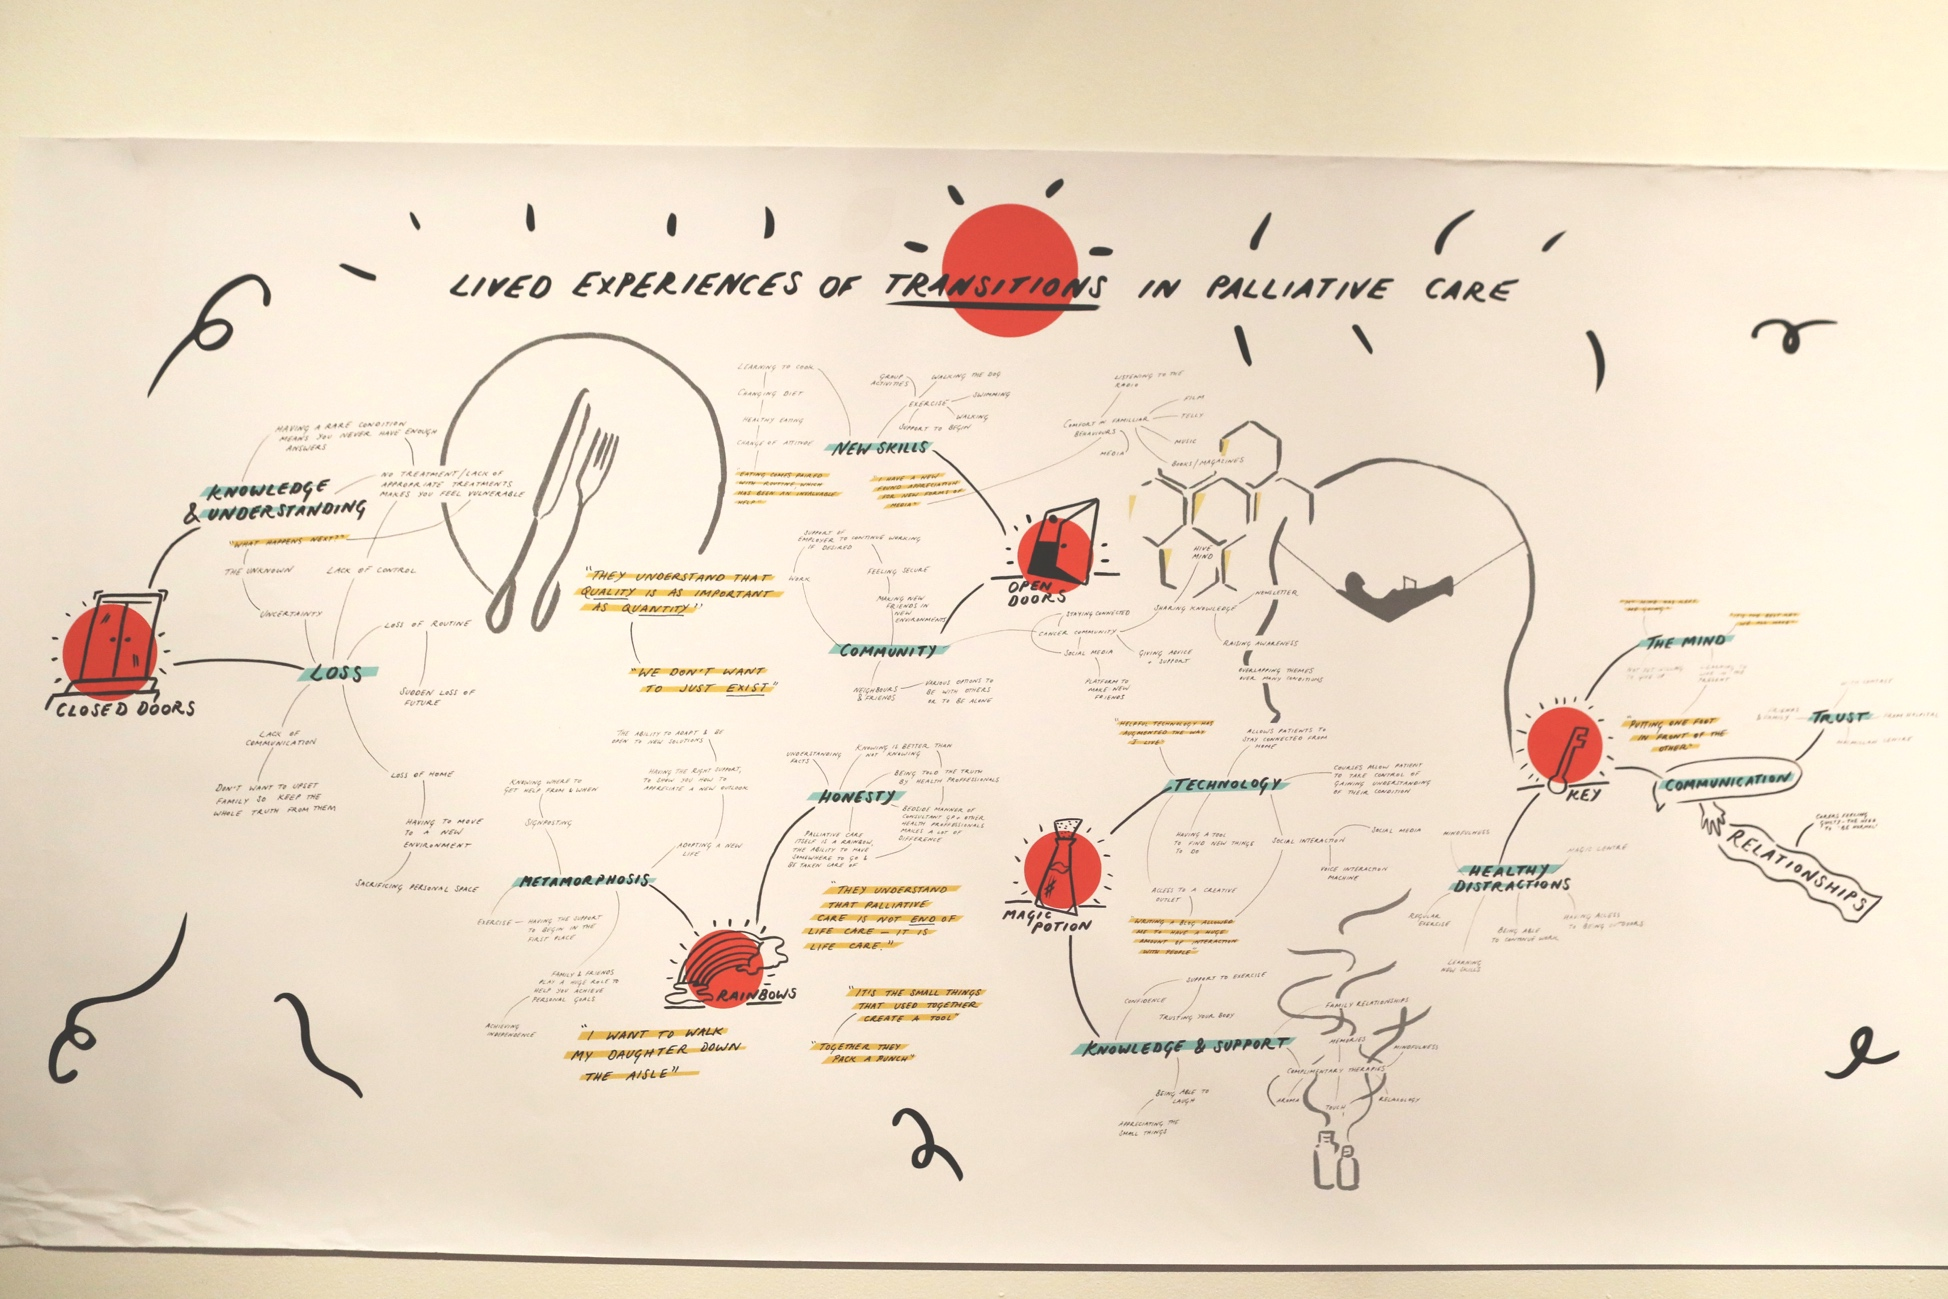 LIVED EXPERIENCES OF TRANSITIONS IN PALLIATIVE CARE
HAVING A RARE CONDITION
MEANS YOU NEVER HAVE ENOUGH
ANSWERS
NO TREATMENT/LACK OF
APPROPRIATE TREATMENTS
MAKES YOU FEEL VULNERABLE
KNOWLEDGE
& UNDERSTANDING
"WHAT HAPPENS NEXT?"
THE UNKNOWN
LACK OF CONTROL
UNCERTAINTY
LOSS OF ROUTINE
CLOSED DOORS
LOSS
SUDDEN LOSS OF
FUTURE
LACK OF
COMMUNICATION
DON'T WANT TO UPSET
FAMILY SO KEEP THE
WHOLE TRUTH FROM THEM
LOSS OF HOME
HAVING TO MOVE
TO A NEW
ENVIRONMENT
SACRIFICING PERSONAL SPACE
"THEY UNDERSTAND THAT
QUALITY IS AS IMPORTANT
AS QUANTITY"
"WE DON'T WANT
TO JUST EXIST"
LEARNING TO COOK
CHANGING DIET
HEALTHY EATING
CHANGE OF ATTITUDE
GROUP
ACTIVITIES
WALKING THE DOG
EXERCISE
SWIMMING
WALKING
SUPPORT TO BEGIN
NEW SKILLS
"EATING COMES PAIRED
WITH ROUTINE WHICH
HAS BEEN AN INVALUABLE
HELP"
"I HAVE A NEW
FOUND APPRECIATION
FOR NEW FORMS OF
MEDIA"
LISTENING TO THE
RADIO
COMFORT IN FAMILIAR
BEHAVIOURS
FILM
TELLY
MUSIC
MEDIA
BOOKS/MAGAZINES
OPEN
DOORS
SUPPORT OF
EMPLOYER TO CONTINUE WORKING
IF DESIRED
WORK
FEELING SECURE
MAKING NEW
FRIENDS IN
NEW
ENVIRONMENTS
COMMUNITY
NEIGHBOURS
& FRIENDS
VARIOUS OPTIONS TO
BE WITH OTHERS
OR TO BE ALONE
HIVE
MIND
STAYING CONNECTED
SHARING KNOWLEDGE
NEWSLETTER
CANCER COMMUNITY
SOCIAL MEDIA
GIVING ADVICE
+ SUPPORT
RAISING AWARENESS
PLATFORM TO
MAKE NEW
FRIENDS
OVERLAPPING THEMES
OVER MANY CONDITIONS
THE ABILITY TO ADAPT & BE
OPEN TO NEW SOLUTIONS
HAVING THE RIGHT SUPPORT,
TO SHOW YOU HOW TO
APPRECIATE A NEW OUTLOOK
KNOWING WHERE TO
GET HELP FROM & WHEN
SIGNPOSTING
ADOPTING A NEW
LIFE
METAMORPHOSIS
EXERCISE
HAVING THE SUPPORT
TO BEGIN IN THE
FIRST PLACE
FAMILY & FRIENDS
PLAY A HUGE ROLE TO
HELP YOU ACHIEVE
PERSONAL GOALS
ACHIEVING
INDEPENDENCE
RAINBOWS
"I WANT TO WALK
MY DAUGHTER DOWN
THE AISLE"
UNDERSTANDING
FACTS
KNOWING IS BETTER THAN
NOT KNOWING
BEING TOLD THE TRUTH
BY HEALTH PROFFESSIONALS
HONESTY
BEDSIDE MANNER OF
CONSULTANT GP + OTHER
HEALTH PROFFESSIONALS
MAKES A LOT OF
DIFFERENCE
PALLIATIVE CARE
ITSELF IS A RAINBOW,
THE ABILITY TO HAVE
SOMEWHERE TO GO &
BE TAKEN CARE OF
"THEY UNDERSTAND
THAT PALLIATIVE
CARE IS NOT END OF
LIFE CARE – IT IS
LIFE CARE."
"IT IS THE SMALL THINGS
THAT USED TOGETHER
CREATE A TOOL"
"TOGETHER THEY
PACK A PUNCH"
"HELPFUL TECHNOLOGY HAS
AUGMENTED THE WAY
I LIVE"
ALLOWS PATIENTS TO
STAY CONNECTED FROM
HOME
TECHNOLOGY
COURSES ALLOW PATIENT
TO TAKE CONTROL OF
GAINING UNDERSTANDING
OF THEIR CONDITION
HAVING A TOOL
TO FIND NEW THINGS
TO DO
SOCIAL INTERACTION
SOCIAL MEDIA
VOICE INTERACTION
MACHINE
ACCESS TO A CREATIVE
OUTLET
"WRITING A BLOG ALLOWED
ME TO HAVE A HUGE
AMOUNT OF INTERACTION
WITH PEOPLE"
MAGIC
POTION
SUPPORT TO EXERCISE
CONFIDENCE
TRUSTING YOUR BODY
KNOWLEDGE & SUPPORT
BEING ABLE TO
LAUGH
APPRECIATING THE
SMALL THINGS
FAMILY RELATIONSHIPS
MEMORIES
MINDFULNESS
COMPLIMENTARY THERAPIES
AROMA
TOUCH
REFLEXOLOGY
THE MIND
"PUTTING ONE FOOT
IN FRONT OF THE
OTHER"
KEY
FRIENDS
& FAMILY
TRUST
FROM HOSPITAL
COMMUNICATION
RELATIONSHIPS
MINDFULNESS
HEALTHY
DISTRACTIONS
REGULAR
EXERCISE
BEING ABLE
TO CONTINUE WORK
HAVING ACCESS
TO BEING OUTDOORS
LEARNING
NEW SKILLS